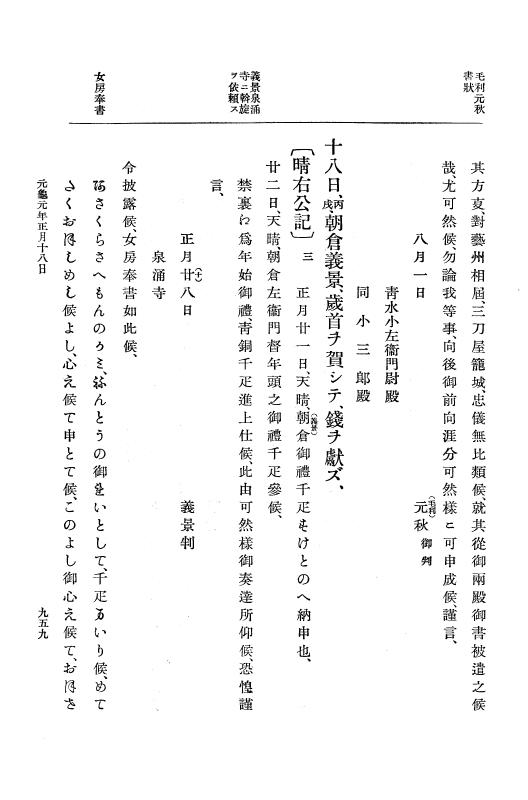 毛利元秋
書狀
義景泉涌
寺ニ斡旋
ヲ依賴ス
女房奉書
其方㕝、對藝州相屆、三刀屋籠城、忠儀無比類候、就其從御兩殿御書被遣之候
哉、尤可然候、勿論我等事、向後御前向涯分可然樣ニ可申成候、謹言、
八月一日
元秋御判
(毛利)
靑水小左衞門尉殿
同小三郎殿
十八日、丙戌朝倉義景、歲首ヲ賀シテ、錢ヲ獻ズ、
〔晴右公記〕三 正月廿一日、天晴、朝倉御禮千疋もけとのへ納申也、
(義景)
廿二日、天晴、朝倉左衞門督年頭之御禮千疋參候、
禁裏ゟ爲年始御禮、靑銅千疋進上仕候、此由可然樣御奏達所仰候、恐惶謹
言、
正月廿八日
(十)
義景判
泉涌寺
令披露候、女房奉書如此候、
あさくらさへもんのかミ、ねんとうの御れいとして、千疋まいり候、めて
たくおほしめし候よし、心え候て申とて候、このよし御心え候て、おほせ
元龜元年正月十八日
九五九